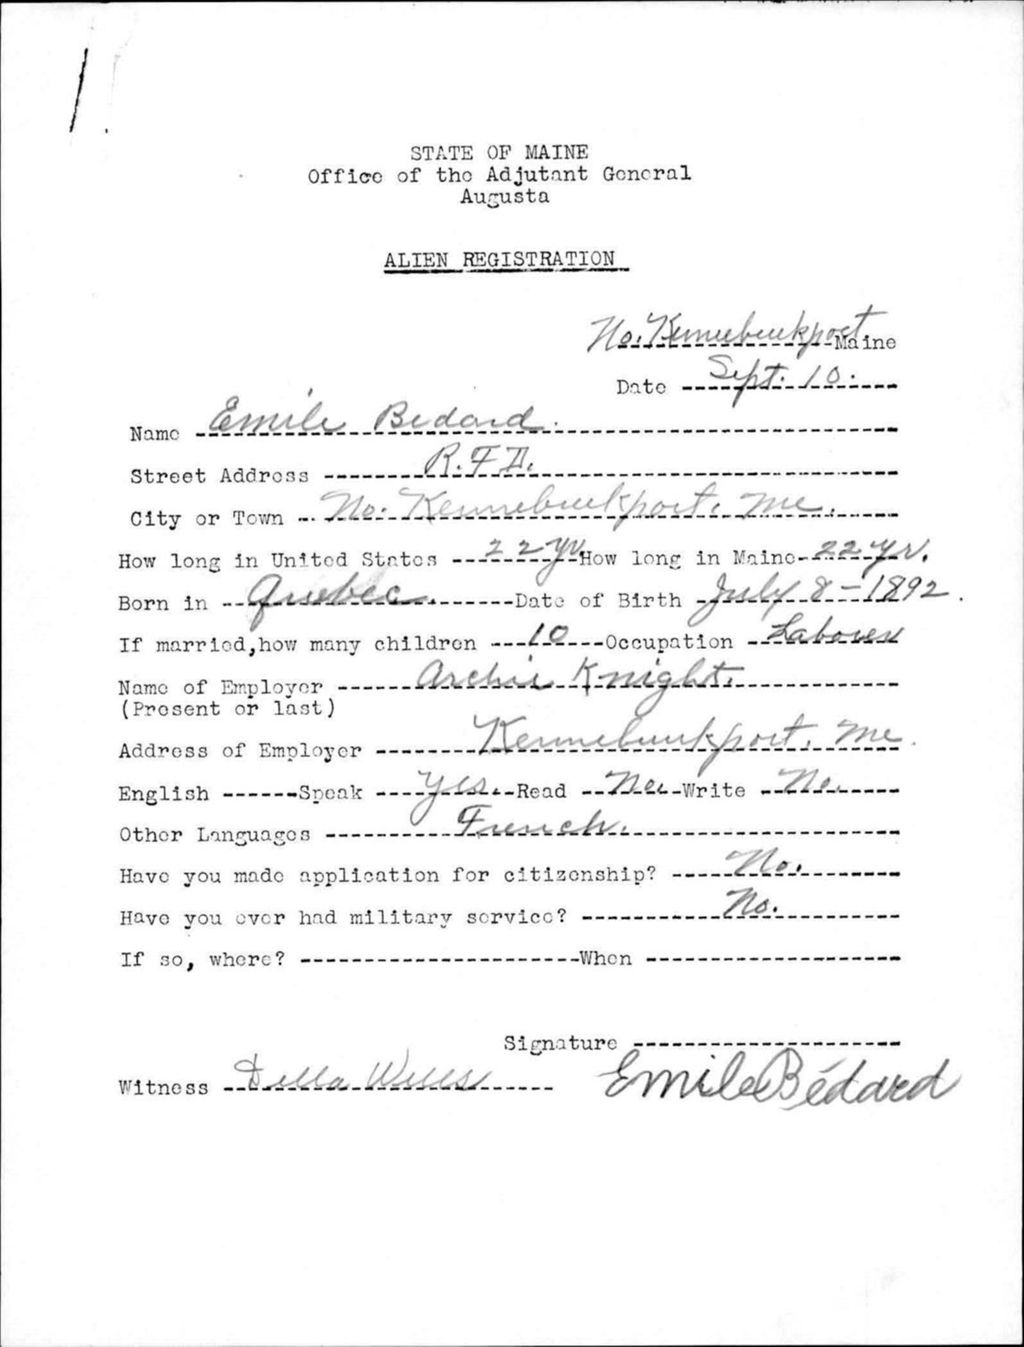 STATE OF MAINE
Office of the Adjutant General
Augusta
ALIEN REGISTRATION
No. Kennebunkport Maine
Date Sept. 10.
Name Emile Bedard.
Street Address R.F.D.
City or Town No. Kennebunkport. Me.
How long in United States 22 yr. How long in Maine 22 yr.
Born in Quebec. Date of Birth July 8-1892.
If married, how many children 10 Occupation Laborer
Name of Employer Archie Knight.
(Present or last)
Address of Employer Kennebunkport, Me.
English Speak Yes. Read No. Write No.
Other Languages French.
Have you made application for citizenship? No.
Have you ever had military service? No.
If so, where? When
Signature
Witness Della Wells Emile Bédard